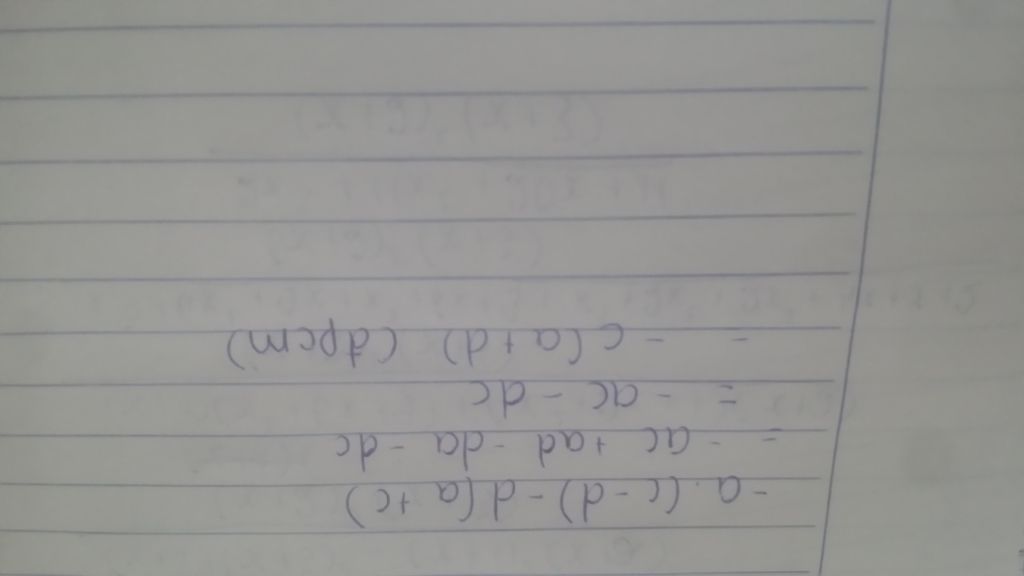 -a.(c-d)-d(a+c)
= -ac +ad -da -dc
= -ac -dc
= -c(a+d) (đpcm)